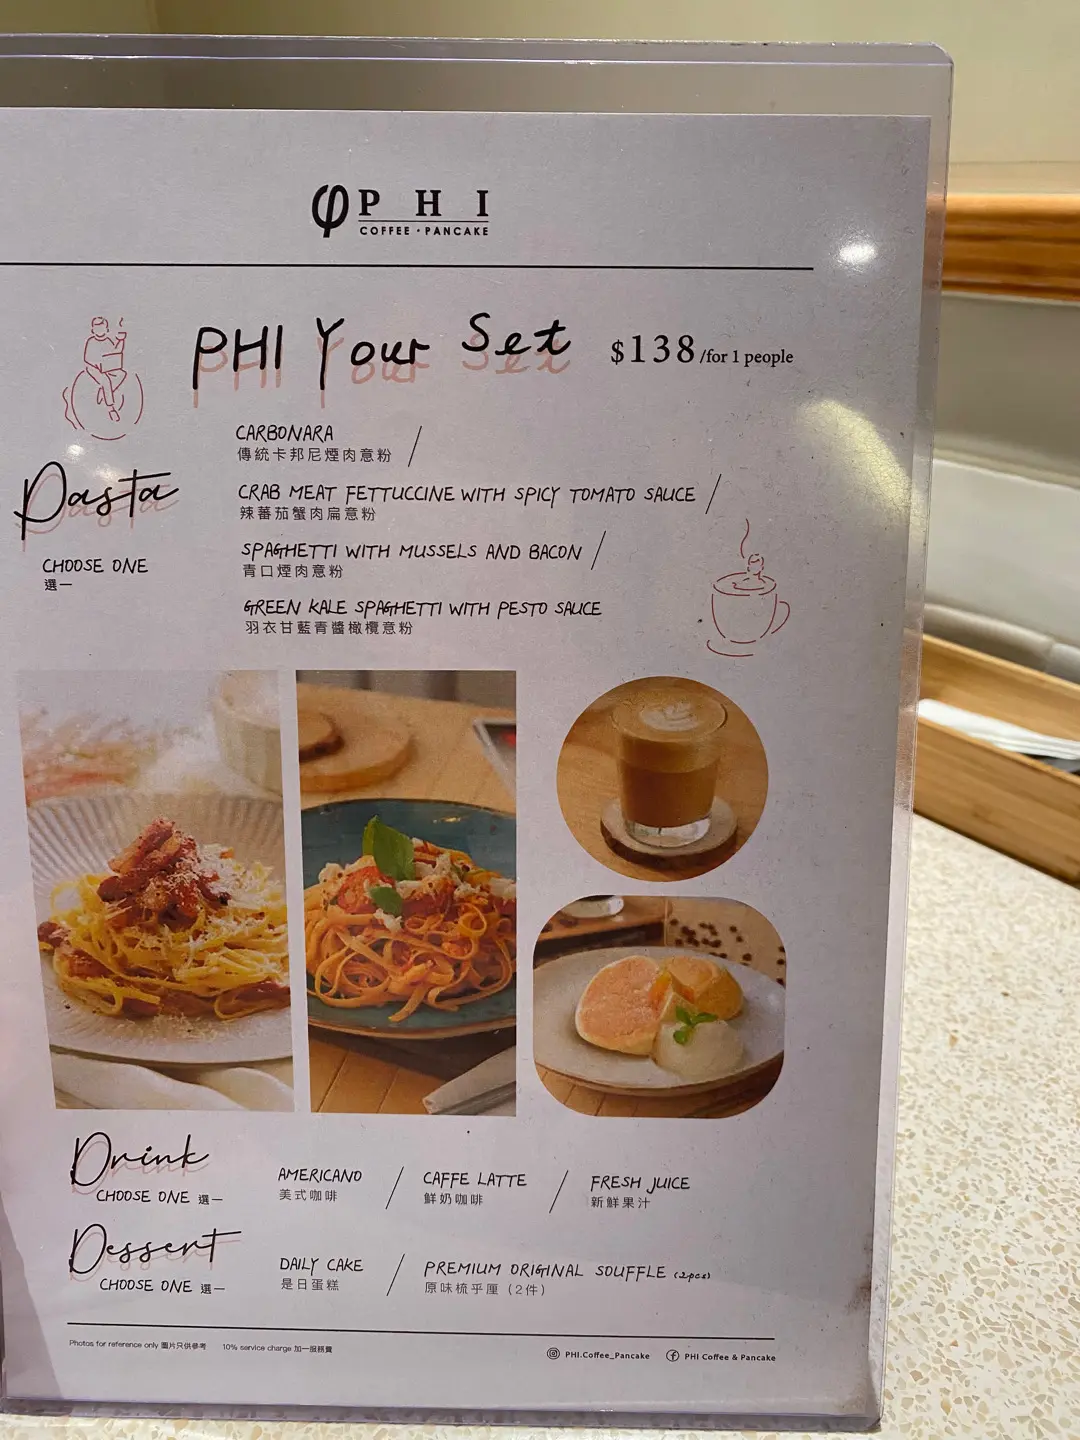 φ PHI
COFFEE · PANCAKE
PHI Your Set $138/for 1 people
Pasta
CHOOSE ONE
選一
CARBONARA /
傳統卡邦尼煙肉意粉
CRAB MEAT FETTUCCINE WITH SPICY TOMATO SAUCE /
辣蕃茄蟹肉扁意粉
SPAGHETTI WITH MUSSELS AND BACON /
青口煙肉意粉
GREEN KALE SPAGHETTI WITH PESTO SAUCE
羽衣甘藍青醬橄欖意粉
Drink
CHOOSE ONE 選一
AMERICANO / CAFFE LATTE / FRESH JUICE
美式咖啡 鮮奶咖啡 新鮮果汁
Dessert
CHOOSE ONE 選一
DAILY CAKE / PREMIUM ORIGINAL SOUFFLE (2pcs)
是日蛋糕 原味梳乎厘（2件）
Photos for reference only 圖片只供參考 10% service charge 加一服務費
PHI.Coffee_Pancake PHI Coffee & Pancake